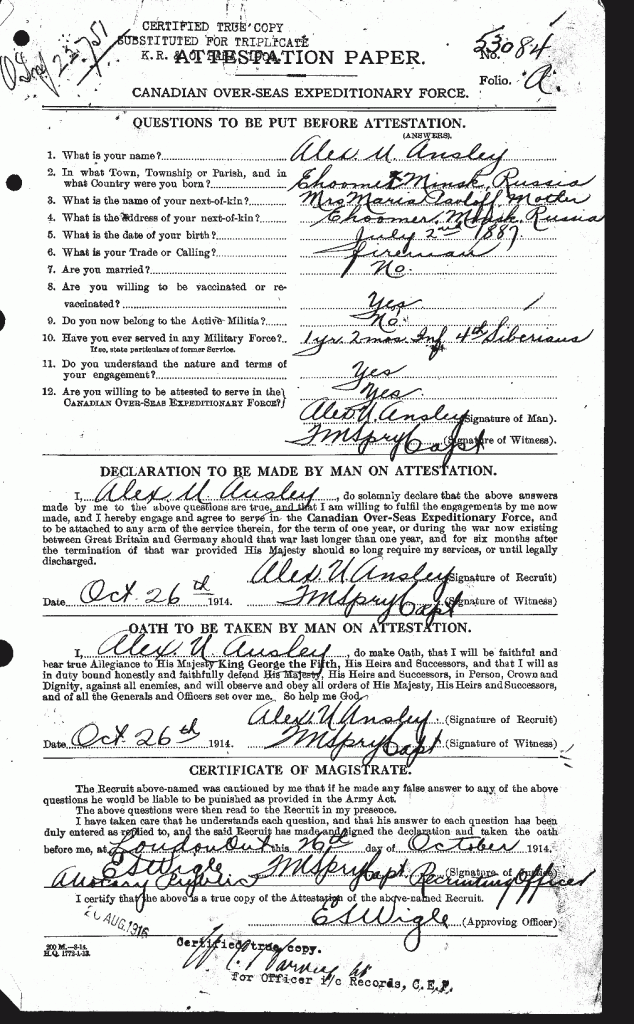 CERTIFIED TRUE COPY
SUBSTITUTED FOR TRIPLICATE
K.R. &
ATTESTATION PAPER.
No. 53084
Folio. A.
CANADIAN OVER-SEAS EXPEDITIONARY FORCE.
QUESTIONS TO BE PUT BEFORE ATTESTATION.
(ANSWERS).
1. What is your name? Alex. U. Ansley
2. In what Town, Township or Parish, and in
what Country were you born? Choomer Minsk, Russia
3. What is the name of your next-of-kin? Mrs Maria Pavloff, Mother
4. What is the address of your next-of-kin? Choomer, Minsk, Russia
5. What is the date of your birth? July 2nd 1887.
6. What is your Trade or Calling? fireman
7. Are you married? No.
8. Are you willing to be vaccinated or re-
vaccinated? Yes
9. Do you now belong to the Active Militia? No.
10. Have you ever served in any Military Force? 1 yr. 2 mos. Inf 4th Siberians
If so, state particulars of former Service.
11. Do you understand the nature and terms of
your engagement? Yes
12. Are you willing to be attested to serve in the
CANADIAN OVER-SEAS EXPEDITIONARY FORCE? Yes
Alex U Ansley (Signature of Man).
F M Spry Capt (Signature of Witness).
DECLARATION TO BE MADE BY MAN ON ATTESTATION.
I, Alex. U Ansley, do solemnly declare that the above answers
made by me to the above questions are true, and that I am willing to fulfil the engagements by me now
made, and I hereby engage and agree to serve in the Canadian Over-Seas Expeditionary Force, and
to be attached to any arm of the service therein, for the term of one year, or during the war now existing
between Great Britain and Germany should that war last longer than one year, and for six months after
the termination of that war provided His Majesty should so long require my services, or until legally
discharged.
Alex. U Ansley (Signature of Recruit)
Date Oct 26th 1914. F M Spry Capt (Signature of Witness)
OATH TO BE TAKEN BY MAN ON ATTESTATION.
I, Alex. U. Ansley, do make Oath, that I will be faithful and
bear true Allegiance to His Majesty King George the Fifth, His Heirs and Successors, and that I will as
in duty bound honestly and faithfully defend His Majesty, His Heirs and Successors, in Person, Crown and
Dignity, against all enemies, and will observe and obey all orders of His Majesty, His Heirs and Successors,
and of all the Generals and Officers set over me. So help me God.
Alex U Ansley (Signature of Recruit)
Date Oct. 26th 1914. F M Spry Capt (Signature of Witness)
CERTIFICATE OF MAGISTRATE.
The Recruit above-named was cautioned by me that if he made any false answer to any of the above
questions he would be liable to be punished as provided in the Army Act.
The above questions were then read to the Recruit in my presence.
I have taken care that he understands each question, and that his answer to each question has been
duly entered as replied to, and the said Recruit has made and signed the declaration and taken the oath
before me, at London Ont this 26th day of October 1914.
E S Wigle F M Spry Capt Recruiting Officer (Signature of Justice)
Notary Public
I certify that the above is a true copy of the Attestation of the above-named Recruit.
E S Wigle (Approving Officer)
AUG. 1916
200 M.—8-14.
H.Q. 1772-1-13.
Certified true copy.
for Officer i/c Records, C.E.F.